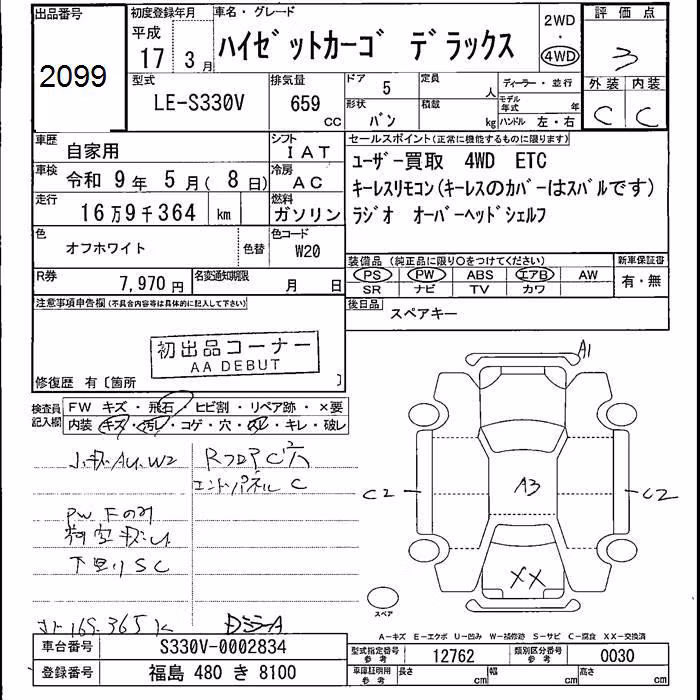 出品番号
2099
初度登録年月
平成
17年 3月
車名・グレード
ハイゼットカーゴ デラックス
2WD
・
4WD
評価点
3
外装 内装
C C
型式
LE-S330V
排気量
659 CC
ドア 5
形状 バン
定員 人
積載 kg
ディーラー・並行
モデル年式 年
ハンドル 左・右
車歴
自家用
シフト
IAT
車検
令和 9年 5月( 8日)
冷房
AC
走行
16万9千364 km
燃料
ガソリン
色
オフホワイト
色替
色コード
W20
R券
7,970円
名変通知期限
月 日
セールスポイント(正常に機能するものに限ります)
ユーザー買取 4WD ETC
キーレスリモコン(キーレスのカバーはスバルです)
ラジオ オーバーヘッドシェルフ
装備品 (純正品に限り○をつけてください)
PS PW ABS エアB AW
SR ナビ TV カワ
新車保証書
有・無
後日品
スペアキー
注意事項申告欄(不具合内容等は具体的に記入して下さい)
初出品コーナー
AA DEBUT
修復歴 有〔箇所 〕
検査員記入欄
FW キズ・飛石・ヒビ割・リペア跡・×要
内装・キズ・汚レ・コゲ・穴・スレ・キレ・破レ
小キズAU.W2
RフロアC穴
エンドパネルC
PW
下廻りSC
A1
C2
A3
C2
XX
スペア
A-キズ E-エクボ U-凹み W-補修跡 S-サビ C-腐食 XX-交換済
車台番号
S330V-0002834
登録番号
福島 480 き 8100
型式指定番号
参考
12762
類別区分番号
参考
0030
車庫証明用
参考
長さ cm 幅 cm 高さ cm